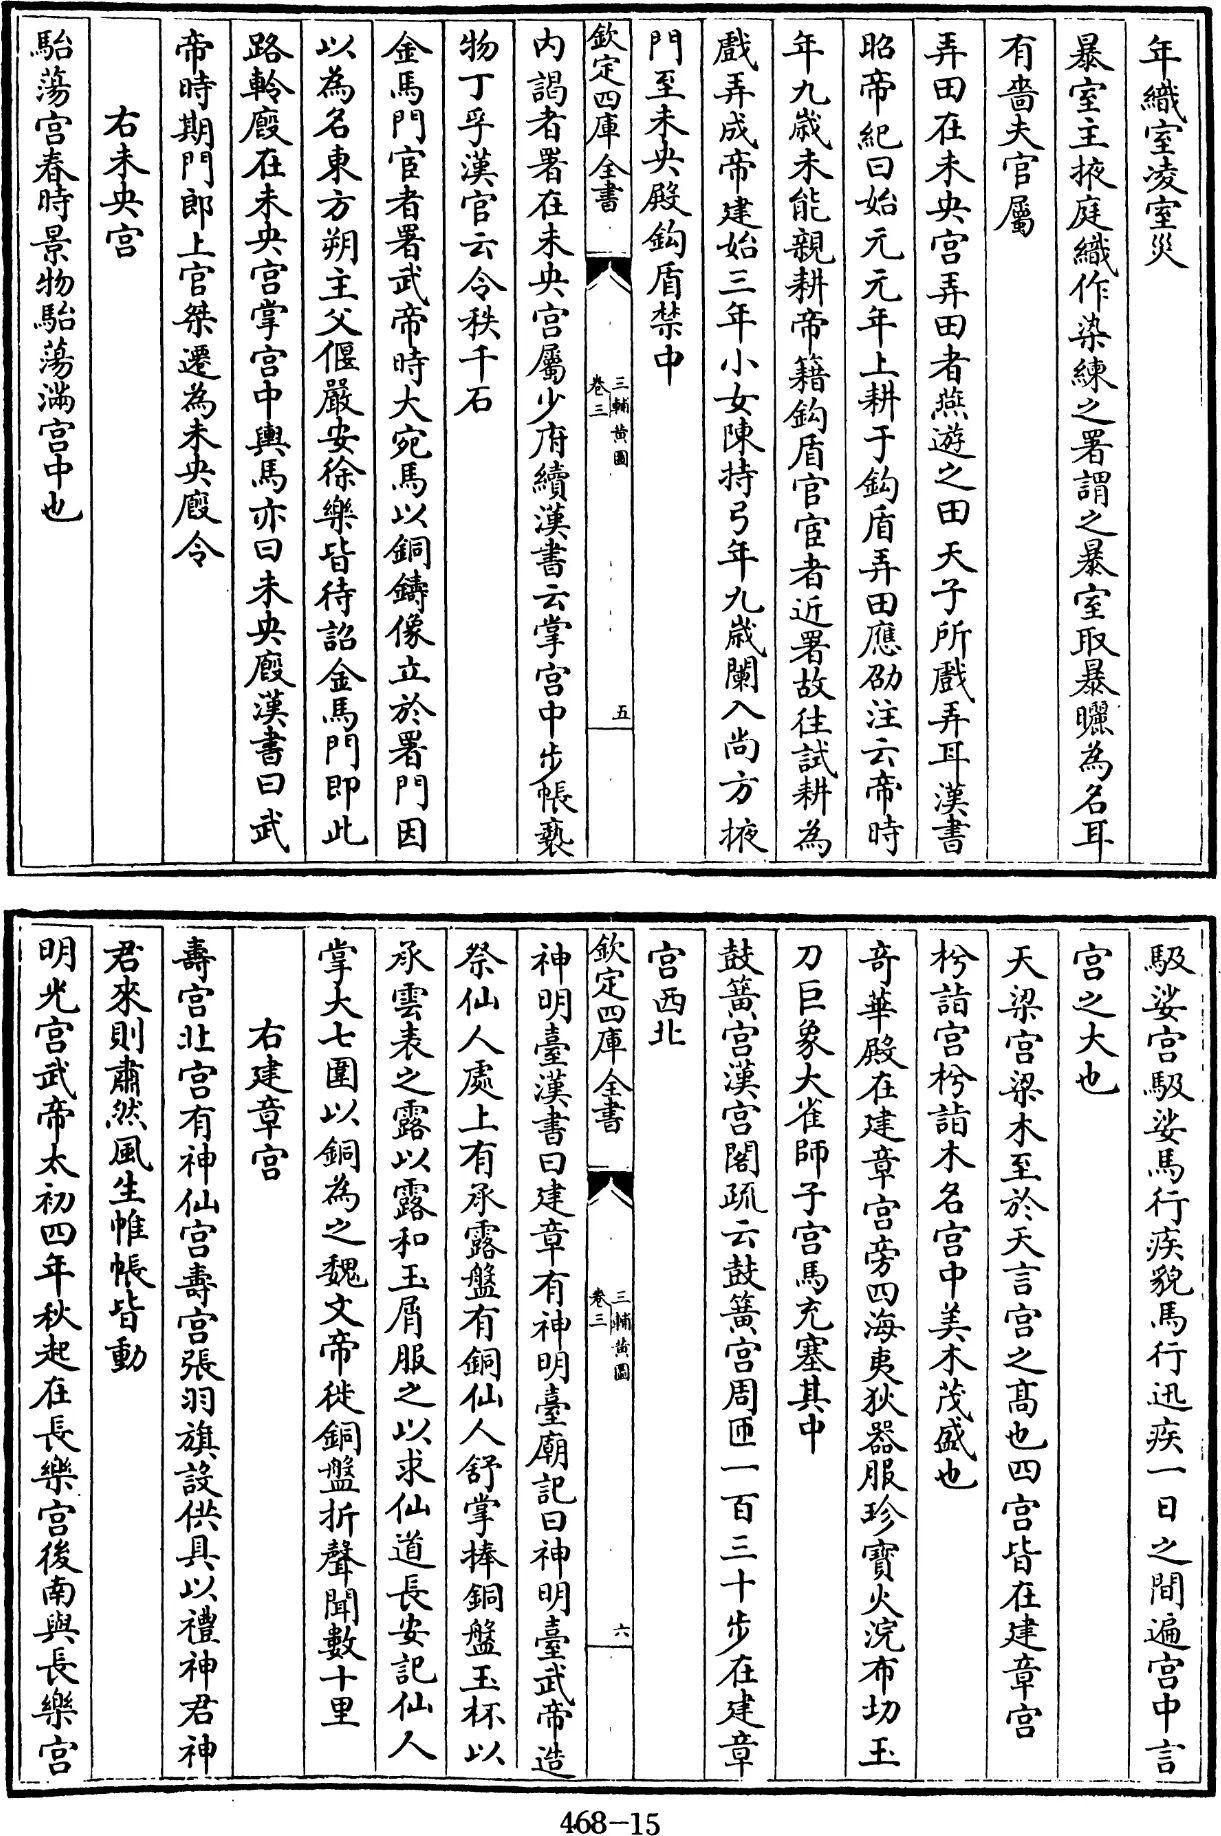 年織室凌室災
暴室主掖庭織作染練之署謂之暴室取暴曬為名耳
有嗇夫官屬
弄田在未央宫弄田者燕遊之田天子所戲弄耳漢書
昭帝紀曰始元元年上耕于鈎盾弄田應劭注云帝時
年九歲未能親耕帝籍鈎盾官宦者近署故往試耕為
戲弄成帝建始三年小女陳持弓年九歲闌入尚方掖
門至未央殿鈎盾禁中
欽定四庫全書
三輔黄圖
卷三
五
内謁者署在未央宫屬少府續漢書云掌宫中步帳褻
物丁孚漢官云令秩千石
金馬門宦者署武帝時大宛馬以銅鑄像立於署門因
以為名東方朔主父偃嚴安徐樂皆待詔金馬門即此
路軨廐在未央宫掌宫中輿馬亦曰未央廐漢書曰武
帝時期門郎上官桀遷為未央廐令
右未央宫
駘蕩宫春時景物駘蕩滿宫中也
馺娑宫馺娑馬行疾貌馬行迅疾一日之間遍宫中言
宫之大也
天梁宫梁木至於天言宫之髙也四宫皆在建章宫
枍詣宫枍詣木名宫中美木茂盛也
奇華殿在建章宫旁四海夷狄器服珍寶火浣布切玉
刀巨象大雀師子宫馬充塞其中
鼓簧宫漢宫閣疏云鼓簧宫周匝一百三十步在建章
宫西北
欽定四庫全書
三輔黄圖
卷三
六
神明臺漢書曰建章有神明臺廟記曰神明臺武帝造
祭仙人處上有承露盤有銅仙人舒掌捧銅盤玉杯以
承雲表之露以露和玉屑服之以求仙道長安記仙人
掌大七圍以銅為之魏文帝徙銅盤折聲聞數十里
右建章宫
壽宫北宫有神仙宫壽宫張羽旗設供具以禮神君神
君來則肅然風生帷帳皆動
明光宫武帝太初四年秋起在長樂宫後南與長樂宫
468-15